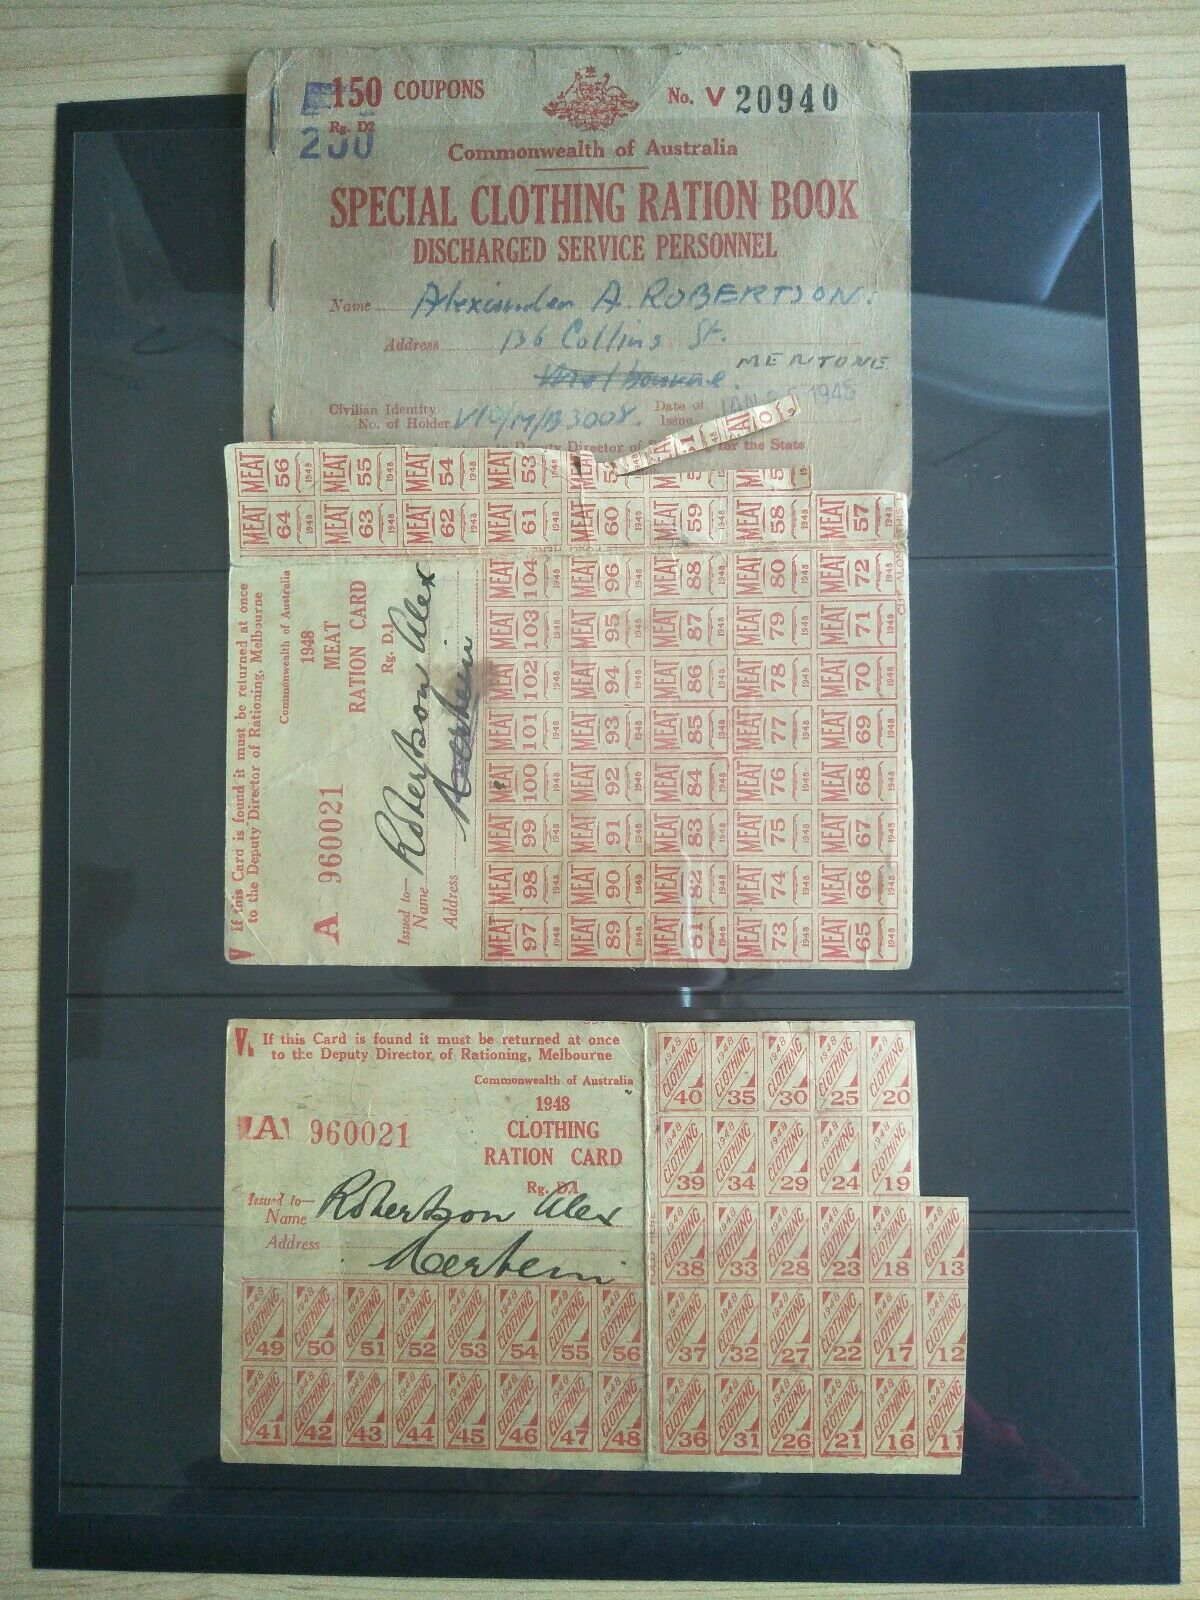 150 COUPONS
No. V 20940
Rg. D2
200
Commonwealth of Australia
SPECIAL CLOTHING RATION BOOK
DISCHARGED SERVICE PERSONNEL
Name Alexander A. ROBERTSON.
Address 136 Collins St.
Melbourne. MENTONE
Civilian Identity
No. of Holder
Date of
Issue JAN 1945
Deputy Director of for the State
MEAT 56 1948 MEAT 55 1948 MEAT 54 1948 MEAT 53 1948
MEAT 64 1948 MEAT 63 1948 MEAT 62 1948 MEAT 61 1948 MEAT 60 1948 MEAT 59 1948 MEAT 58 1948 MEAT 57 1948
V If this Card is found it must be returned at once
to the Deputy Director of Rationing, Melbourne
Commonwealth of Australia
1948
MEAT
RATION CARD
Rg. D.1
A 960021
Issued to—
Name Robertson Alex
Address Merbein
MEAT 104 1948 MEAT 96 1948 MEAT 88 1948 MEAT 80 1948 MEAT 72 1948
MEAT 103 1948 MEAT 95 1948 MEAT 87 1948 MEAT 79 1948 MEAT 71 1948
MEAT 102 1948 MEAT 94 1948 MEAT 86 1948 MEAT 78 1948 MEAT 70 1948
MEAT 101 1948 MEAT 93 1948 MEAT 85 1948 MEAT 77 1948 MEAT 69 1948
MEAT 100 1948 MEAT 92 1948 MEAT 84 1948 MEAT 76 1948 MEAT 68 1948
MEAT 99 1948 MEAT 91 1948 MEAT 83 1948 MEAT 75 1948 MEAT 67 1948
MEAT 98 1948 MEAT 90 1948 MEAT 82 1948 MEAT 74 1948 MEAT 66 1948
MEAT 97 1948 MEAT 89 1948 MEAT 81 1948 MEAT 73 1948 MEAT 65 1948
V. If this Card is found it must be returned at once
to the Deputy Director of Rationing, Melbourne
Commonwealth of Australia
1948
A 960021
CLOTHING
RATION CARD
Rg. D.1
Issued to—
Name Robertson Alex
Address Merbein
1948 CLOTHING 40 1948 CLOTHING 35 1948 CLOTHING 30 1948 CLOTHING 25 1948 CLOTHING 20
1948 CLOTHING 39 1948 CLOTHING 34 1948 CLOTHING 29 1948 CLOTHING 24 1948 CLOTHING 19
1948 CLOTHING 38 1948 CLOTHING 33 1948 CLOTHING 28 1948 CLOTHING 23 1948 CLOTHING 18 1948 CLOTHING 13
1948 CLOTHING 37 1948 CLOTHING 32 1948 CLOTHING 27 1948 CLOTHING 22 1948 CLOTHING 17 1948 CLOTHING 12
1948 CLOTHING 36 1948 CLOTHING 31 1948 CLOTHING 26 1948 CLOTHING 21 1948 CLOTHING 16 1948 CLOTHING 11
1948 CLOTHING 49 1948 CLOTHING 50 1948 CLOTHING 51 1948 CLOTHING 52 1948 CLOTHING 53 1948 CLOTHING 54 1948 CLOTHING 55 1948 CLOTHING 56
1948 CLOTHING 41 1948 CLOTHING 42 1948 CLOTHING 43 1948 CLOTHING 44 1948 CLOTHING 45 1948 CLOTHING 46 1948 CLOTHING 47 1948 CLOTHING 48